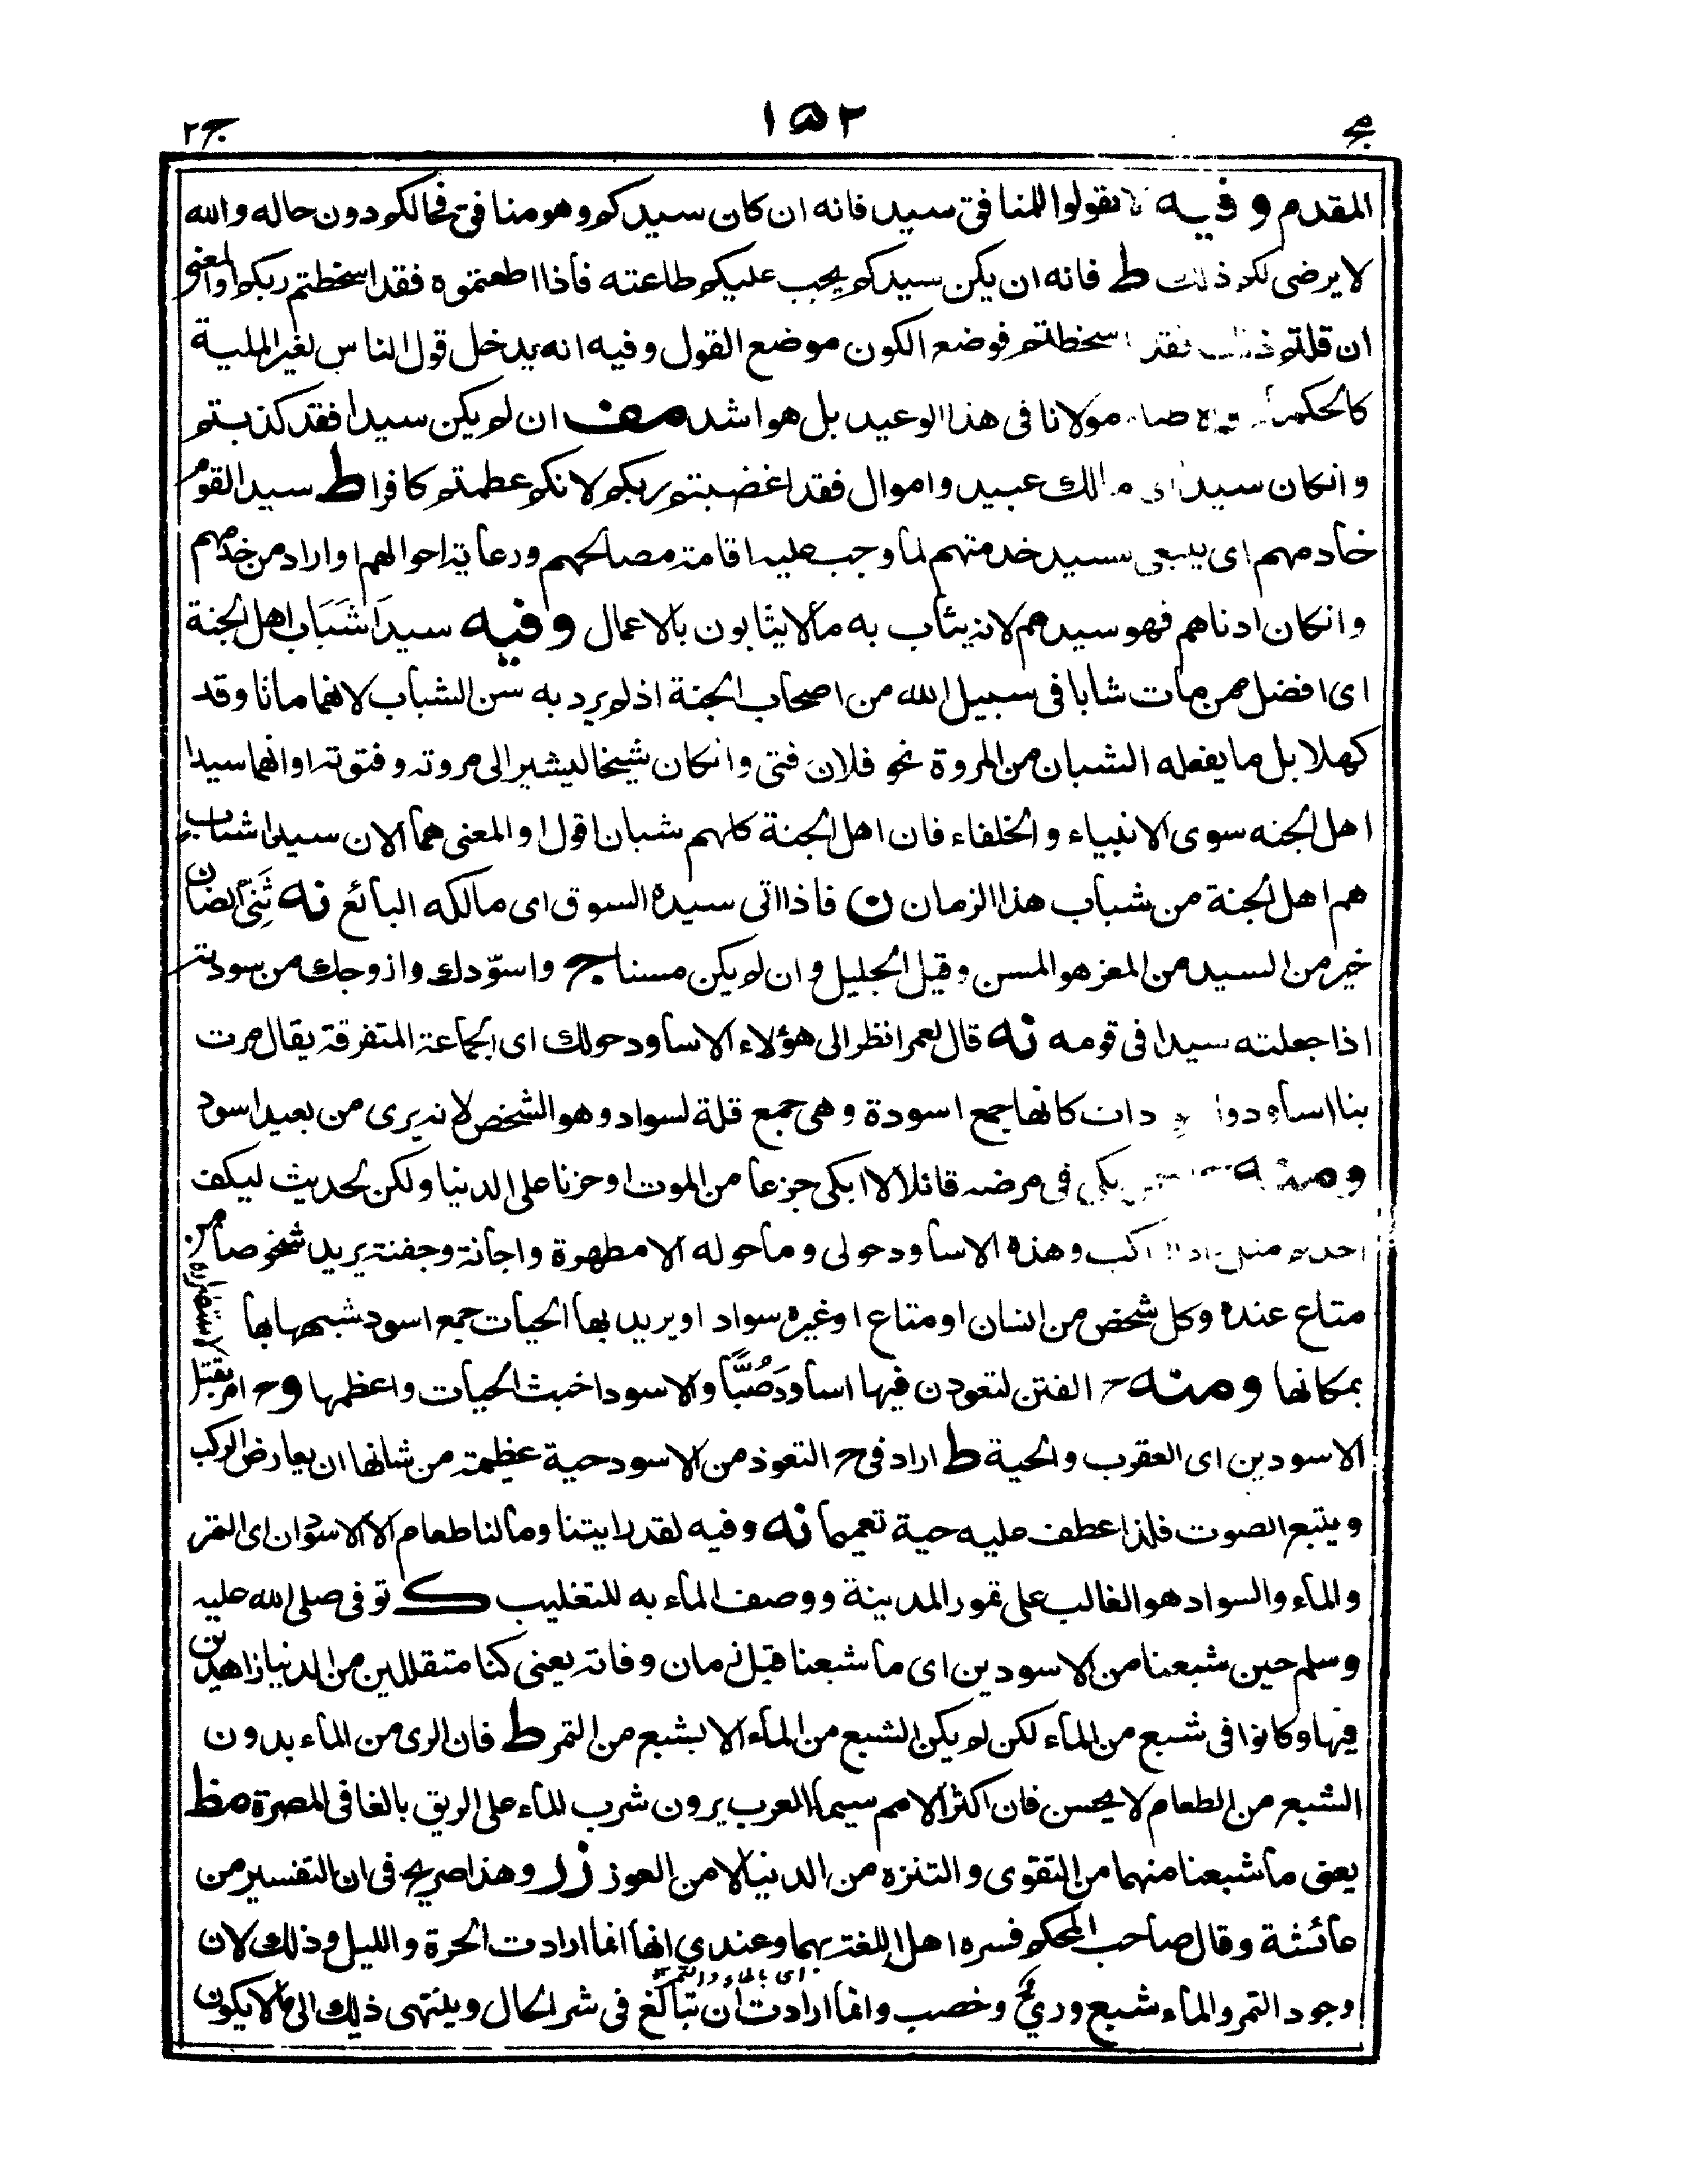 مج ١٥٢ ج٢
المقدم وفيه لا تقولوا للمنافق سيد فانه ان كان سيدكم وهو منافق فحالكم دون حاله والله
لا يرضى لكم ذلك ط فانه ان يكن سيدكم يجب عليكم طاعته فأذا اطعتموه فقد اسخطتم ربكم او المعنى
ان قلتم ذلك فقد اسخطتم فوضع الكون موضع القول وفيه انه يدخل قول الناس لغير الملية
كالحكماء مولانا فى هذا الوعيد بل هو اشد مف ان لم يكن سيدا فقد كذبتم
وانكان سيدا اى مالك عبيد واموال فقد اغضبتم ربكم لانكم عظمتم كافرا ط سيد القوم
خادمهم اى ينبغى للسيد خدمتهم لما وجب عليه اقامة مصالحهم ورعاية احوالهم او اراد من خدمهم
وانكان ادناهم فهو سيدهم لانه يثاب به مألا يثابون بالاعمال وفيه سيدَا شَبَاب اهل الجنة
اى افضل ممن مات شابا فى سبيل الله من اصحاب الجنة اذ لم يرد به سن الشباب لانهما ماتا وقد
كهلا بل ما يفعله الشبان من المروة نحو فلان فتى وانكان شيخا ليشير الى مروته وفتوته او انهما سيدا
اهل الجنه سوى الانبياء والخلفاء فان اهل الجنة كلهم شبان اقول او المعنى هما الان سيدا شباب
هم اهل الجنة من شباب هذا الزمان ن فاذا اتى سيده السوق اى مالكه البائع نه ثَنِيّ الضان
خير من السيد من المعز هو المسن وقيل الجليل وان لم يكن مسنا ج واسوّدك وازوجك من سودته
اذا جعلته سيدا فى قومه نه قال لعمر انظر الى هؤلاء الاساود حولك اى الجماعة المتفرقة يقال مرت
بنا اساود دات كانها جمع اسودة وهى جمع قلة لسواد وهو الشخص لانه يرى من بعيد اسود
ومنه يبكى فى مرضه قائلا لا ابكى جزعا من الموت او حزنا على الدنيا ولكن لحديث ليكف
احدكم مثل زاد الراكب وهذه الاساود حولى وما حوله الا مطهرة واجانة وجفنة يريد شخوصا من
متاع عنده وكل شخص من انسان او متاع او غيره سواد او يريد بها الحيات جمع اسود شبهها بها لاستضراره
بمكانها ومنه ح الفتن لتعودن فيها اساودَ صُبًّا والاسود اخبث الحيات واعظمها وح امر بقتل
الاسودين اى العقرب والحية ط اراد فى ح التعوذ من الاسود حية عظيمة من شانها ان يعارض الركب
ويتبع الصوت فلذا عطف عليه حية تعميما نه وفيه لقد رايتنا ومالنا طعام الا الاسودان اى التمر
والماء والسواد هو الغالب على تمور المدينة ووصف الماء به للتغليب ك توفى صلى الله عليه
وسلم حين شبعنا من الاسودين اى ما شبعنا قبل زمان وفاته يعنى كنا متقللين من الدنيا زاهدين
فيها وكانوا فى شبع من الماء لكن لم يكن الشبع من الماء الا بشبع من التمر ط فان الرى من الماء بدون
الشبع من الطعام لا يحسن فان اكثر الامم سيما العرب يرون شرب الماء على الريق بالغا فى المضرة مظ
يعنى ما شبعنا منهما من التقوى والتنزه من الدنيا لا من العوز زر وهذا صريح فى ان التفسير من
عائشة وقال صاحب المحكم فسره اهل اللغة بهما وعندي انها انما ارادت الحرة والليل وذلك لان
اى بالماء والتمر
وجود التمر والماء شبع وريّ وخصب وانما ارادت ان تبالغ فى شر الحال وينتهى ذلك الى ما لا يكون